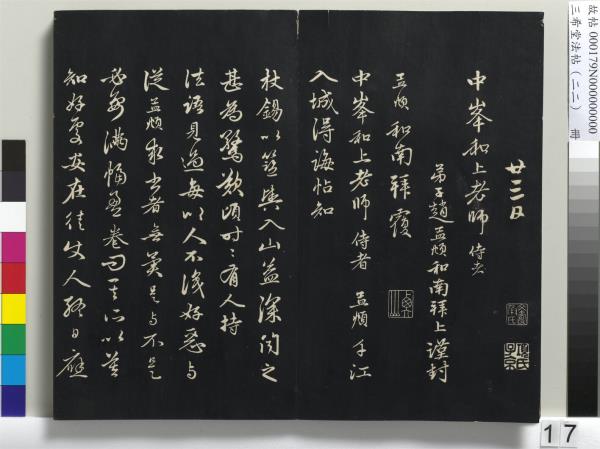 廿三日
中峯和上老師 侍者
弟子趙孟頫和南拜上謹封
孟頫和南拜覆
中峯和上老師 侍者 孟頫手
入城得誨帖知
杖錫以笻輿入山益深聞之
甚為驚歎頃時時有人持
法語見過每以人不識好惡与
從孟頫求書者無異是与不是
必要滿幅盈卷問其所以莫
知好處安在徒使人終日應
故帖 000179N000000000
三希堂法帖(二二) 冊
17